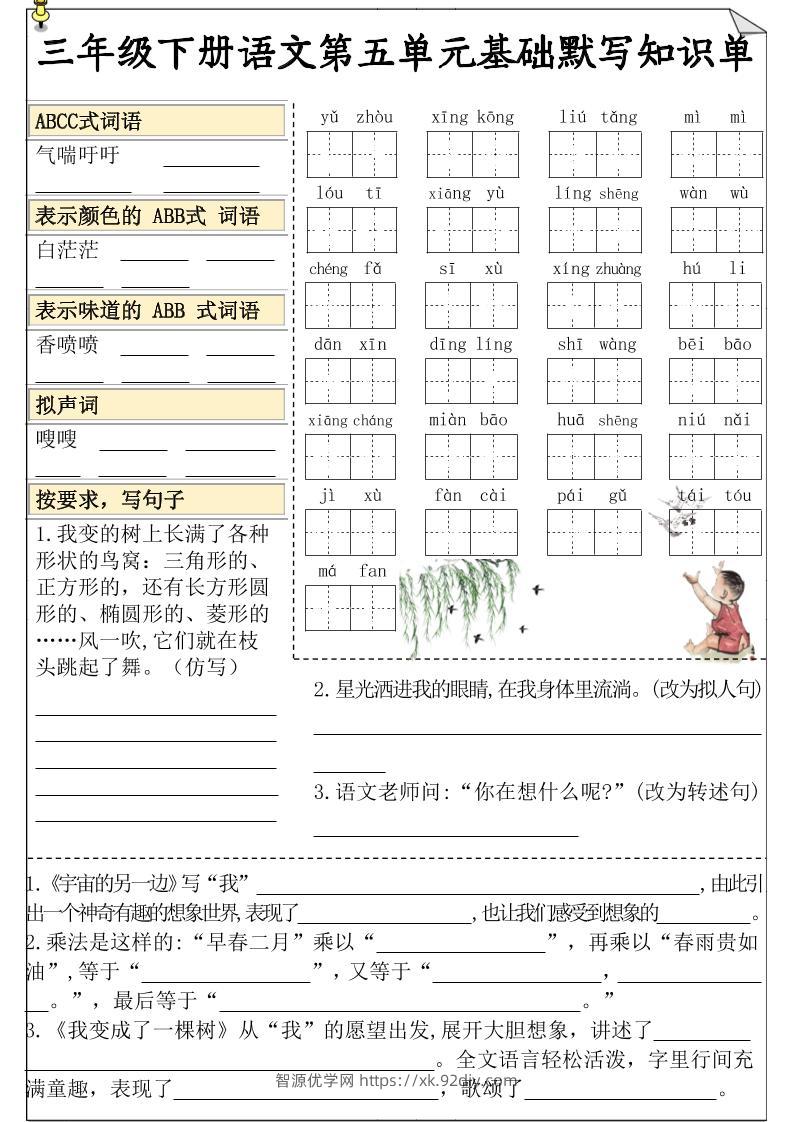 三年级下册语文第五单元基础默写知识单
ABCC式词语
气喘吁吁
表示颜色的 ABB式 词语
白茫茫
表示味道的 ABB 式词语
香喷喷
拟声词
嗖嗖
按要求，写句子
1.我变的树上长满了各种
形状的鸟窝：三角形的、
正方形的，还有长方形圆
形的、椭圆形的、菱形的
……风一吹,它们就在枝
头跳起了舞。（仿写）
yǔ zhòu xīng kōng liú tǎng mì mì
lóu tī xiāng yù líng shēng wàn wù
chéng fǎ sī xù xíng zhuàng hú li
dān xīn dīng líng shī wàng bēi bāo
xiāng cháng miàn bāo huā shēng niú nǎi
jì xù fàn cài pái gǔ tái tóu
má fan
2.星光洒进我的眼睛,在我身体里流淌。(改为拟人句)
3.语文老师问:“你在想什么呢?”(改为转述句)
1.《宇宙的另一边》写“我”____,由此引
出一个神奇有趣的想象世界,表现了____,也让我们感受到想象的____。
2.乘法是这样的:“早春二月”乘以“____”，再乘以“春雨贵如
油”,等于“____”，又等于“____,____
__。”，最后等于“____。”
3.《我变成了一棵树》从“我”的愿望出发,展开大胆想象，讲述了____
____。全文语言轻松活泼，字里行间充
满童趣，表现了____，歌颂了____。
智源优学网 https://xk.92diy.com